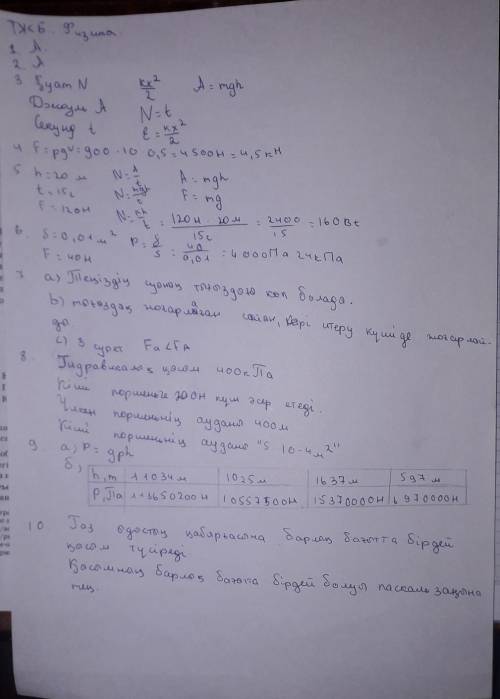 ТЖБ. Физика.
1 А.
2 А
3 Қуат N kx²/2 A = mgh
Джоуль A N = t
Секунд t E = kx²/2
4 F = pgv = 900 · 10 0,5 = 4500Н = 4,5кН
5 h = 20м N = A/t A = mgh
t = 15с N = mgh/t F = mg
F = 120Н N = Fh/t = 120н · 20м / 15с = 2400/15 = 160Вt
6. S = 0,01м² P = F/S = 40/0,01 = 4000Па 24кПа
F = 40н
7. а) Теңіздің тығыздығы көп болады.
b) тығыздақ жоғарлаған сайын, кері итеру күші де жоғарлай-
ды
с) 3 сурет Fa<Fa
8. Гидравликалық қысым 400кПа
Кіші поршеньге 200Н күш әсер етеді.
Үлкен поршеньнің ауданы 400м
Кіші поршеньнің ауданы "5 10-4м²"
9. а, P = gph
б, h, m 11034м 1025м 1637м 597м
P, Па 113650200Н 10557500Н 15370000Н 6970000Н
10. Газ ыдыстың қабырғасына барлық бағытта бірдей
қысым түсіреді
Қысымның барлық бағытта бірдей болуы паскаль заңына
тең.